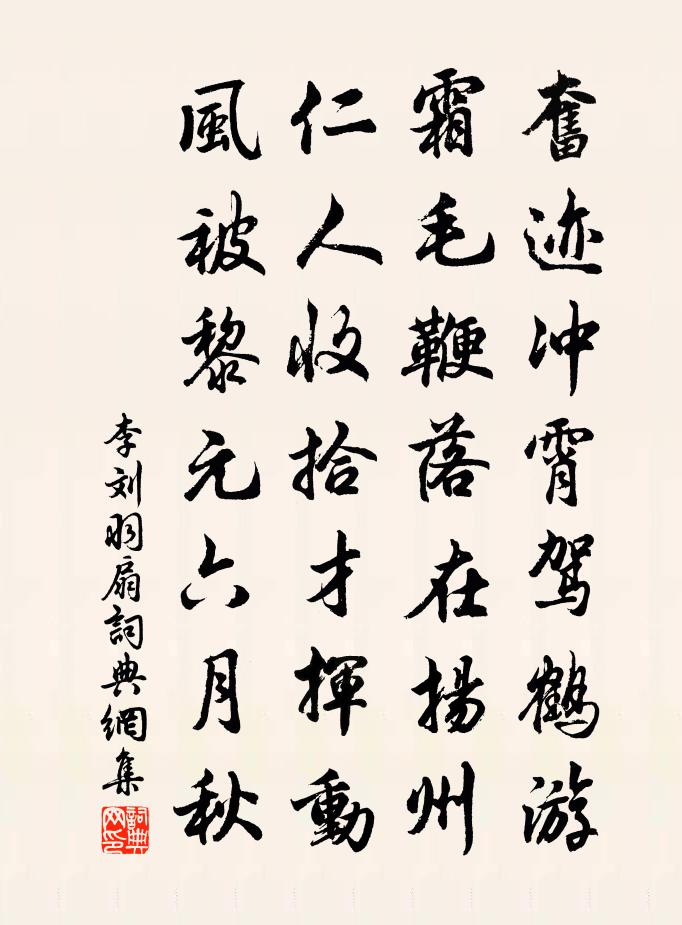 奮迹冲霄駕鶴游
霜毛鞭落在揚州
仁人收拾才揮動
風被黎元六月秋
李刘羽扇詞典網集
詞典网印